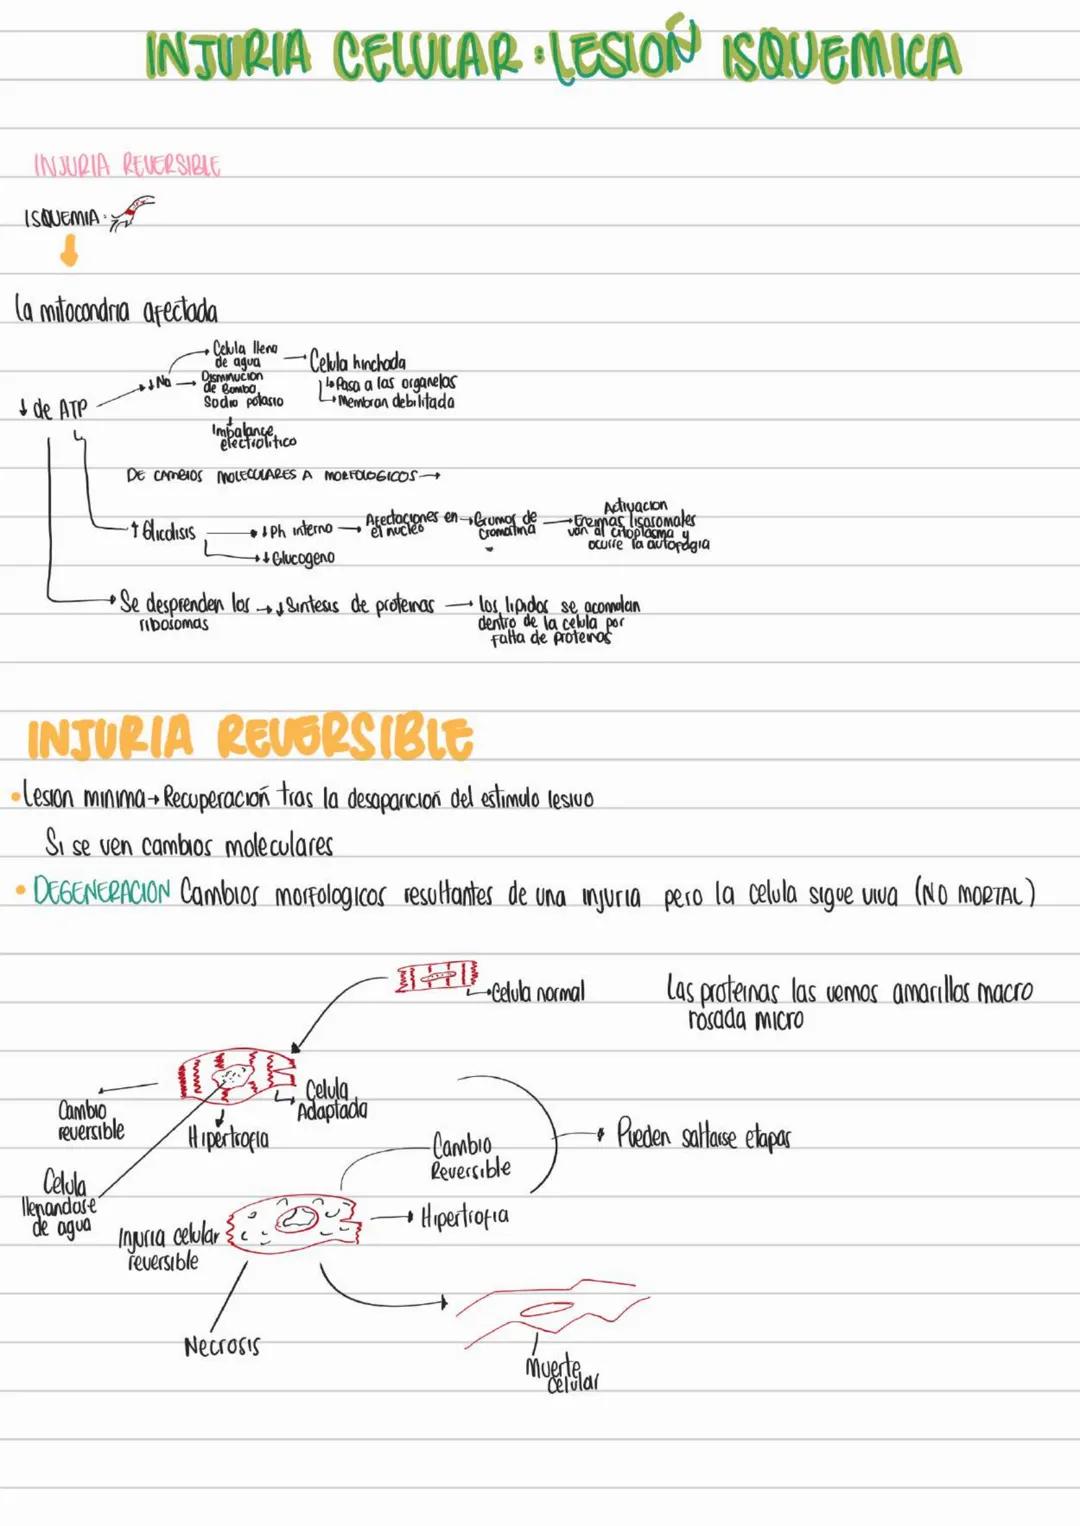 INJURIA CELULAR: LESIOŃ ISQUEMICA
INJURIA REVERSIBLE
ISQUEMIA:
la mitocondria afectada
↓ de ATP
↓ Na
Celula llena
de agua
Disminucion
de Bomba
Sodio potasio
Imbalance
electrolitico
Celula hinchada
Pasa a las organelas
Membran debilitada
DE CAMBIOS MOLECULARES A MORFOLOGICOS →
↑ Glicolisis
↓ Ph interno
↓ Glucogeno
Afectaciones en
el nucleo
Grumos de
cromatina
Activacion
Enzimas lisosomales
van al citoplasma y
ocurre la autofagia
Se desprenden los
ribosomas
↓ Sintesis de proteinas
los lipidos se acomulan
dentro de la celula por
falta de proteinas
INJURIA REVERSIBLE
• Lesion minima → Recuperacioń tras la desaparicioń del estimulo lesivo
Si se ven cambios moleculares
• DEGENERACION Cambios morfologicos resultantes de una injuria pero la celula sigue viva (NO MORTAL)
Celula normal
Las proteinas las vemos amarillas macro
rosada micro
Cambio
reversible
Hipertrofia
Celula
Adaptada
Celula
llenandose
de agua
Cambio
Reversible
Pueden saltarse etapas
Injuria celular
reversible
Hipertrofia
Necrosis
Muerte
celular